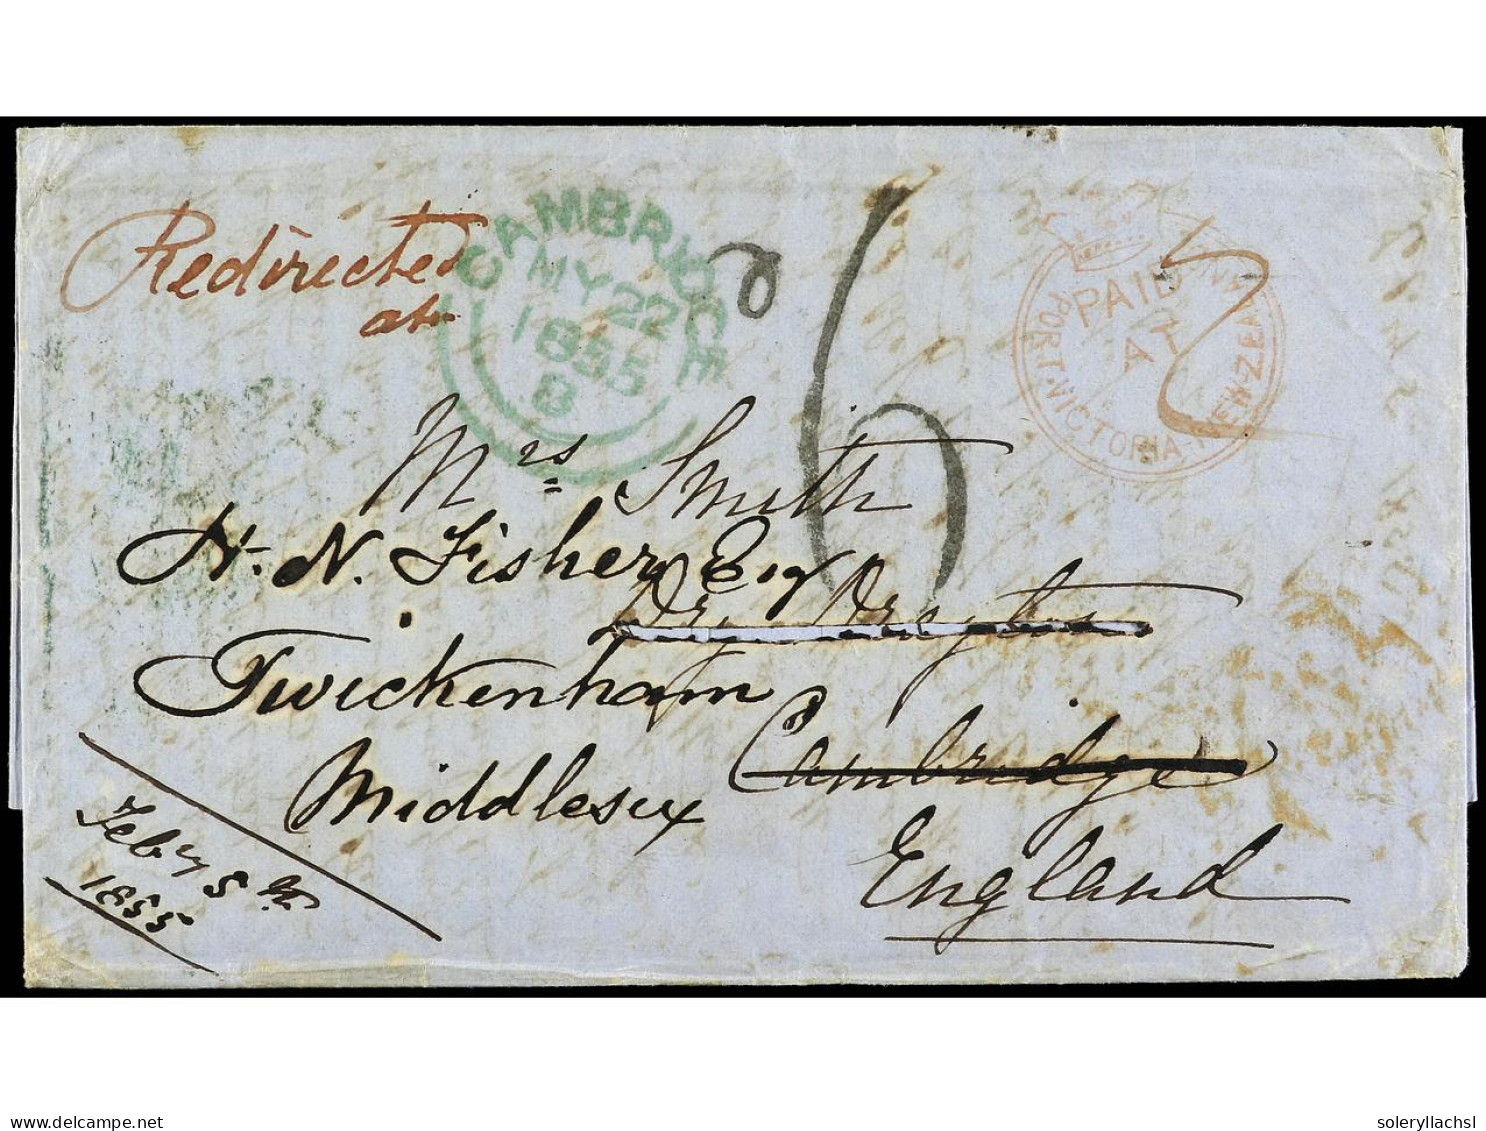 Redirected
at
CAMBRIDGE
MY 22
1855
B
6
PAID
AT
PORT VICTORIA NEW ZEALAND
Mrs Smith
H. N. Fisher Esq
Twickenham
Middlesex
Cambridge
England
Feby 8th
1855
delcampe.net
soleryllachsl